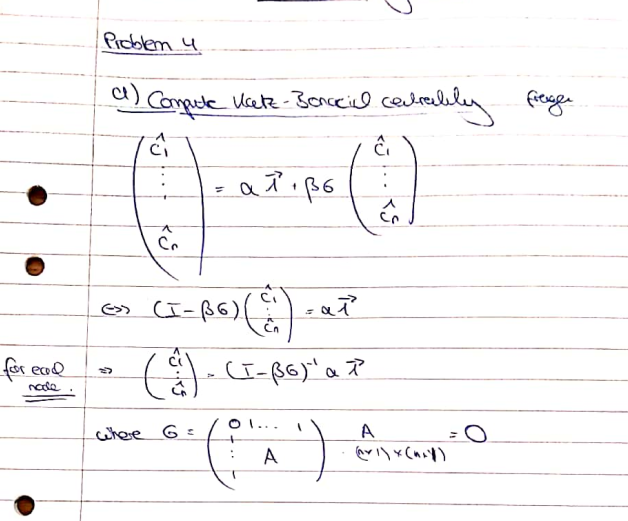 Problem 4
a) Compute Katz-Bonacich centrality
( ĉ₁ ⋮ ĉₙ ) = α 1⃗ + βG ( ĉ₁ ⋮ ĉₙ )
⇔ (I - βG) ( ĉ₁ ⋮ ĉₙ ) = α 1⃗
for each node. ⇒ ( ĉ₁ ⋮ ĉₙ ) = (I - βG)⁻¹ α 1⃗
where G = ( 0 1 ... 1 ; 1 ⋮ 1 A ) A = 0